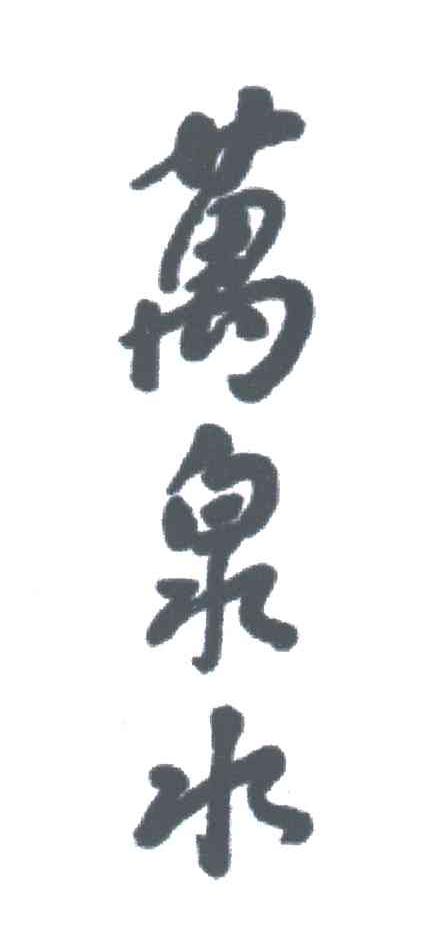 萬泉水